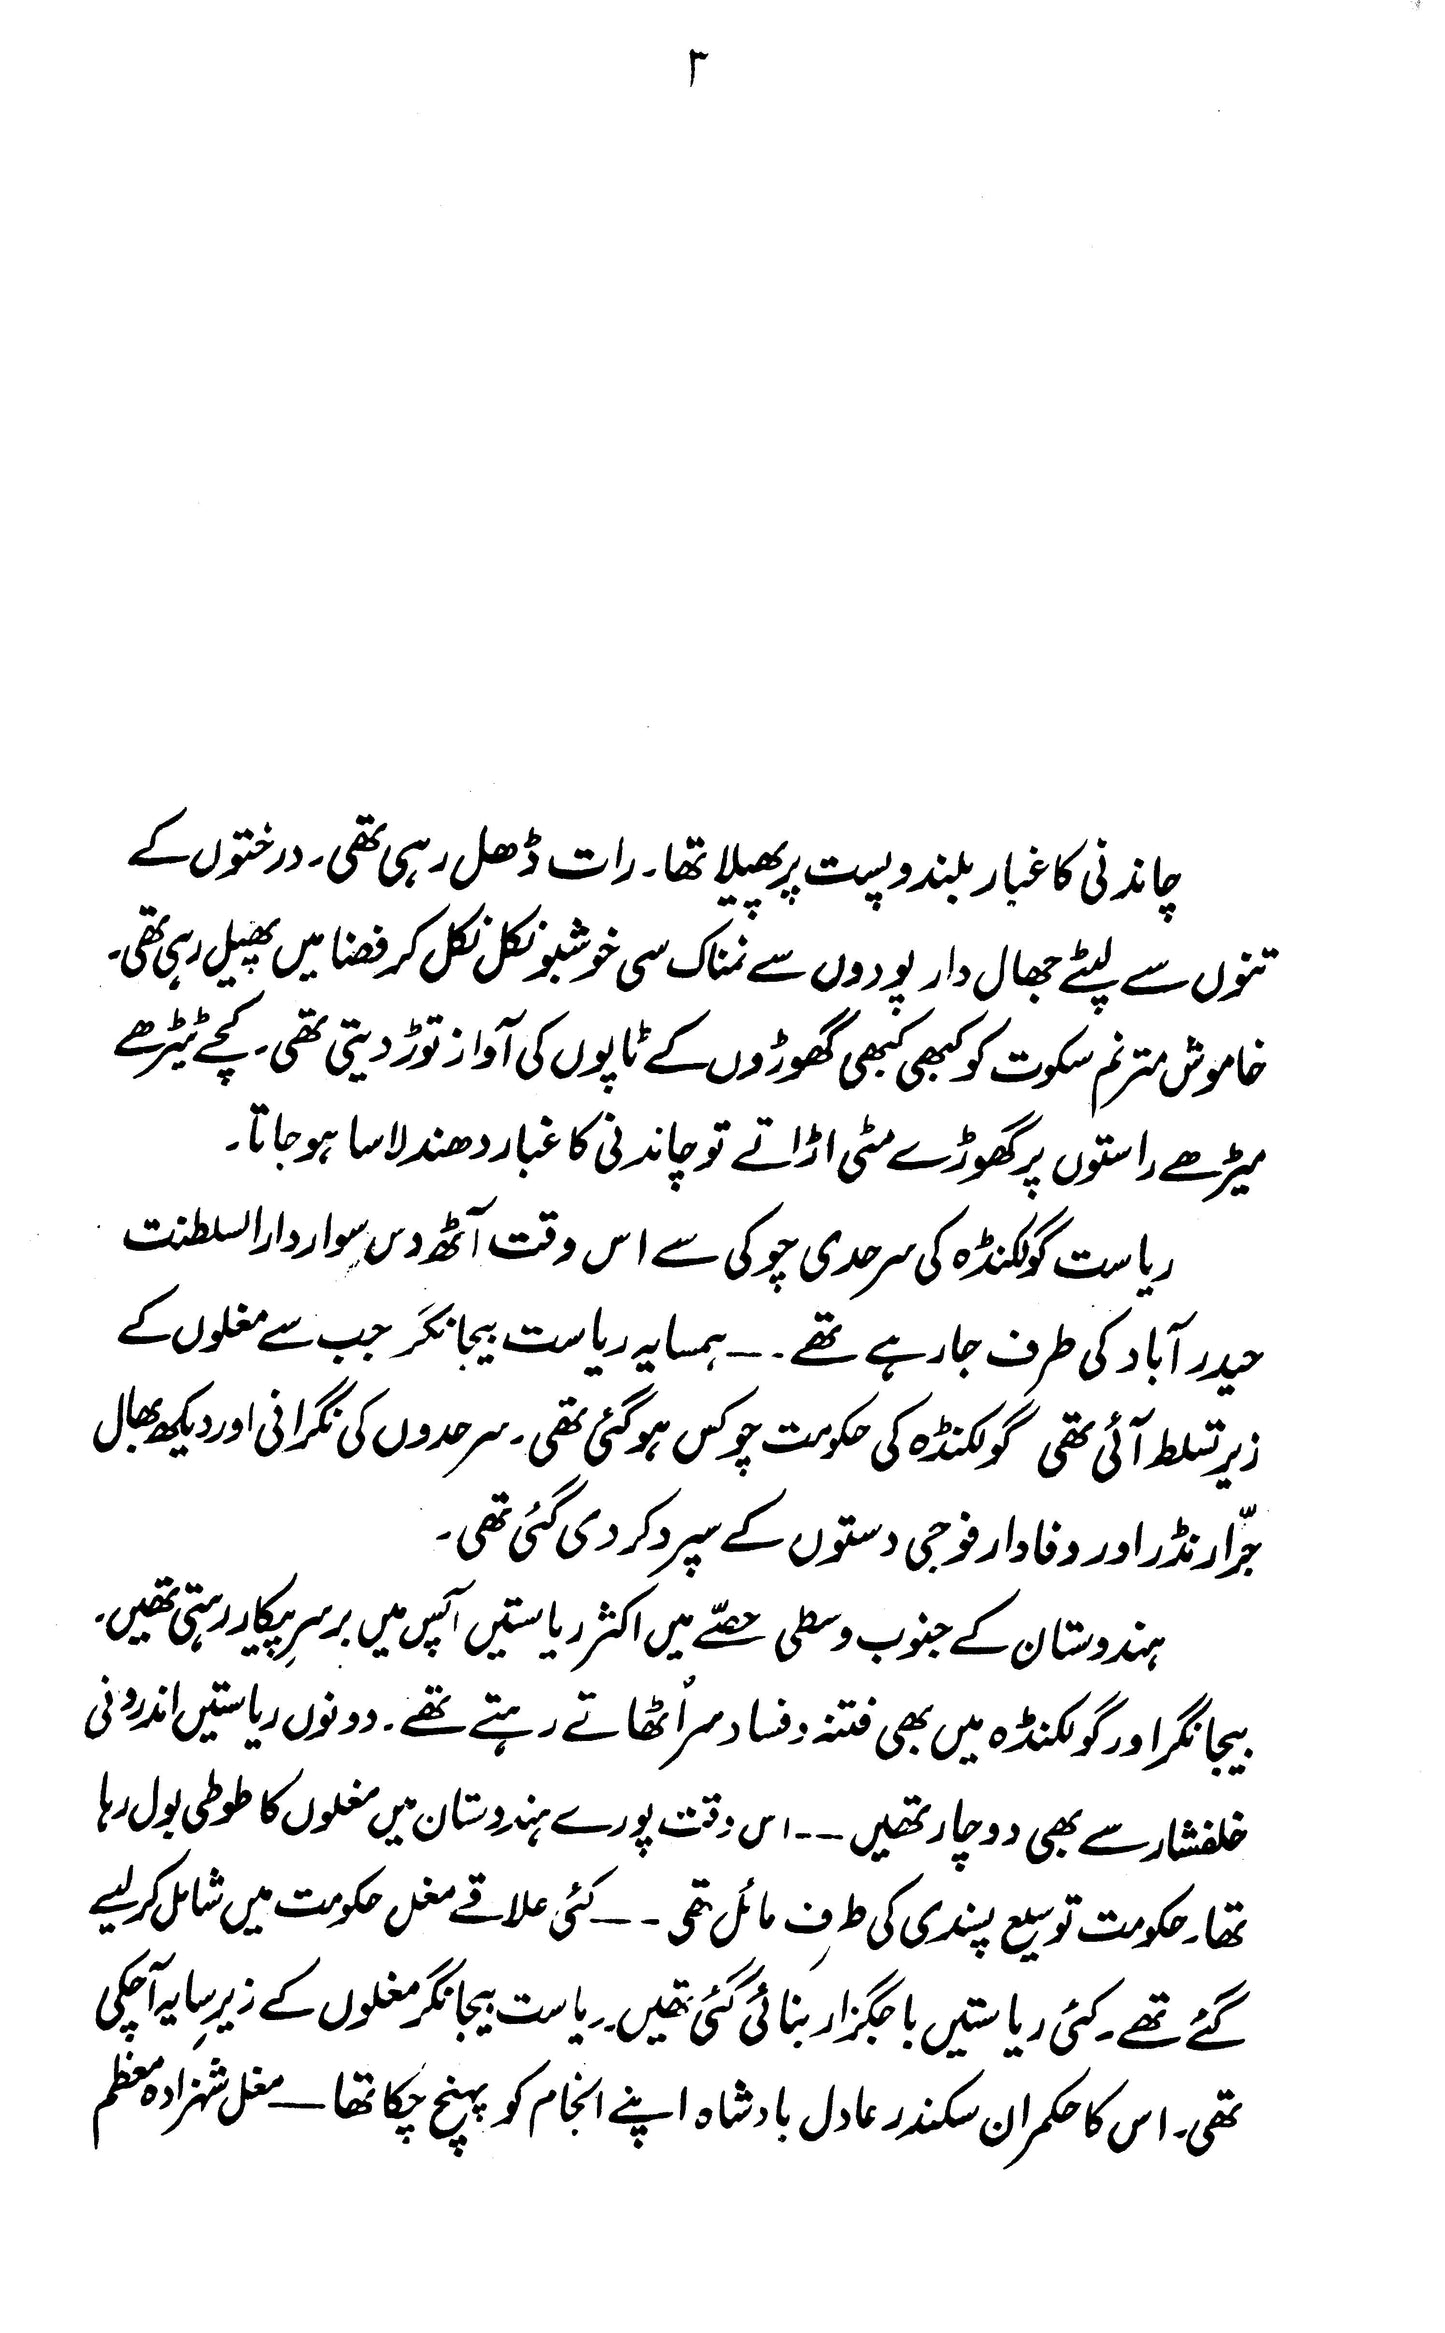 ۳
چاندنی کا غبار بلند و پست پر پھیلا تھا۔ رات ڈھل رہی تھی۔ درختوں کے
تنوں سے لپٹے جھال دار پودوں سے نمناک سی خوشبو نکل نکل کر فضا میں پھیل رہی تھی۔
خاموش مترنم سکوت کو کبھی کبھی گھوڑوں کے ٹاپوں کی آواز توڑ دیتی تھی۔ کچے ٹیڑھے
میڑھے راستوں پر گھوڑے مٹی اڑاتے تو چاندنی کا غبار دھندلا سا ہو جاتا۔
ریاست گولکنڈہ کی سرحدی چوکی سے اس وقت آٹھ دس سوار دارالسلطنت
حیدر آباد کی طرف جا رہے تھے۔ ــ ہمسایہ ریاست بیجانگر جب سے مغلوں کے
زیر تسلط آئی تھی گولکنڈہ کی حکومت چوکس ہو گئی تھی۔ سرحدوں کی نگرانی اور دیکھ بھال
جرّار نڈر اور وفادار فوجی دستوں کے سپرد کر دی گئی تھی۔
ہندوستان کے جنوب وسطی حصّے میں اکثر ریاستیں آپس میں برسرِ پیکار رہتی تھیں۔
بیجانگر اور گولکنڈہ میں بھی فتنہ و فساد سر اُٹھاتے رہتے تھے۔ دونوں ریاستیں اندرونی
خلفشار سے بھی دوچار تھیں ــ اس وقت پورے ہندوستان میں مغلوں کا طوطی بول رہا
تھا۔ حکومت توسیع پسندی کی طرف مائل تھی ــ کئی علاقے مغل حکومت میں شامل کر لیے
گئے تھے۔ کئی ریاستیں باجگزار بنائی گئی تھیں۔ ریاست بیجانگر مغلوں کے زیرِ سایہ آچکی
تھی۔ اس کا حکمران سکندر عادل بادشاہ اپنے انجام کو پہنچ چکا تھا ــ مغل شہزادہ معظم